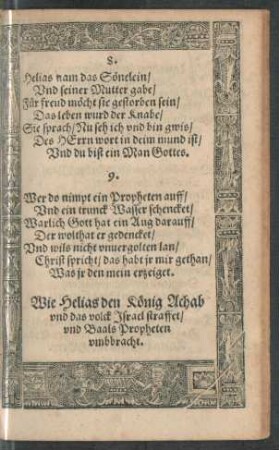 8.
Helias nam das Sönelein/
Vnd seiner Mutter gabe/
Für freud möcht sie gestorben sein/
Das leben wurd der Knabe/
Sie sprach/ Nu seh ich vnd bin gwis/
Des HErrn wort in deim mund ist/
Vnd du bist ein Man Gottes.
9.
Wer do nimpt ein Propheten auff/
Vnd ein trunck Wasser schencket/
Warlich Gott hat ein Aug darauff/
Der wolthat er gedencket/
Vnd wils nicht vnuergolten lan/
Christ spricht/ das habt jr mir gethan/
Was jr den mein erzeiget.
Wie Helias den König Achab
vnd das volck Israel straffet/
vnd Baals Propheten
vmbbracht.